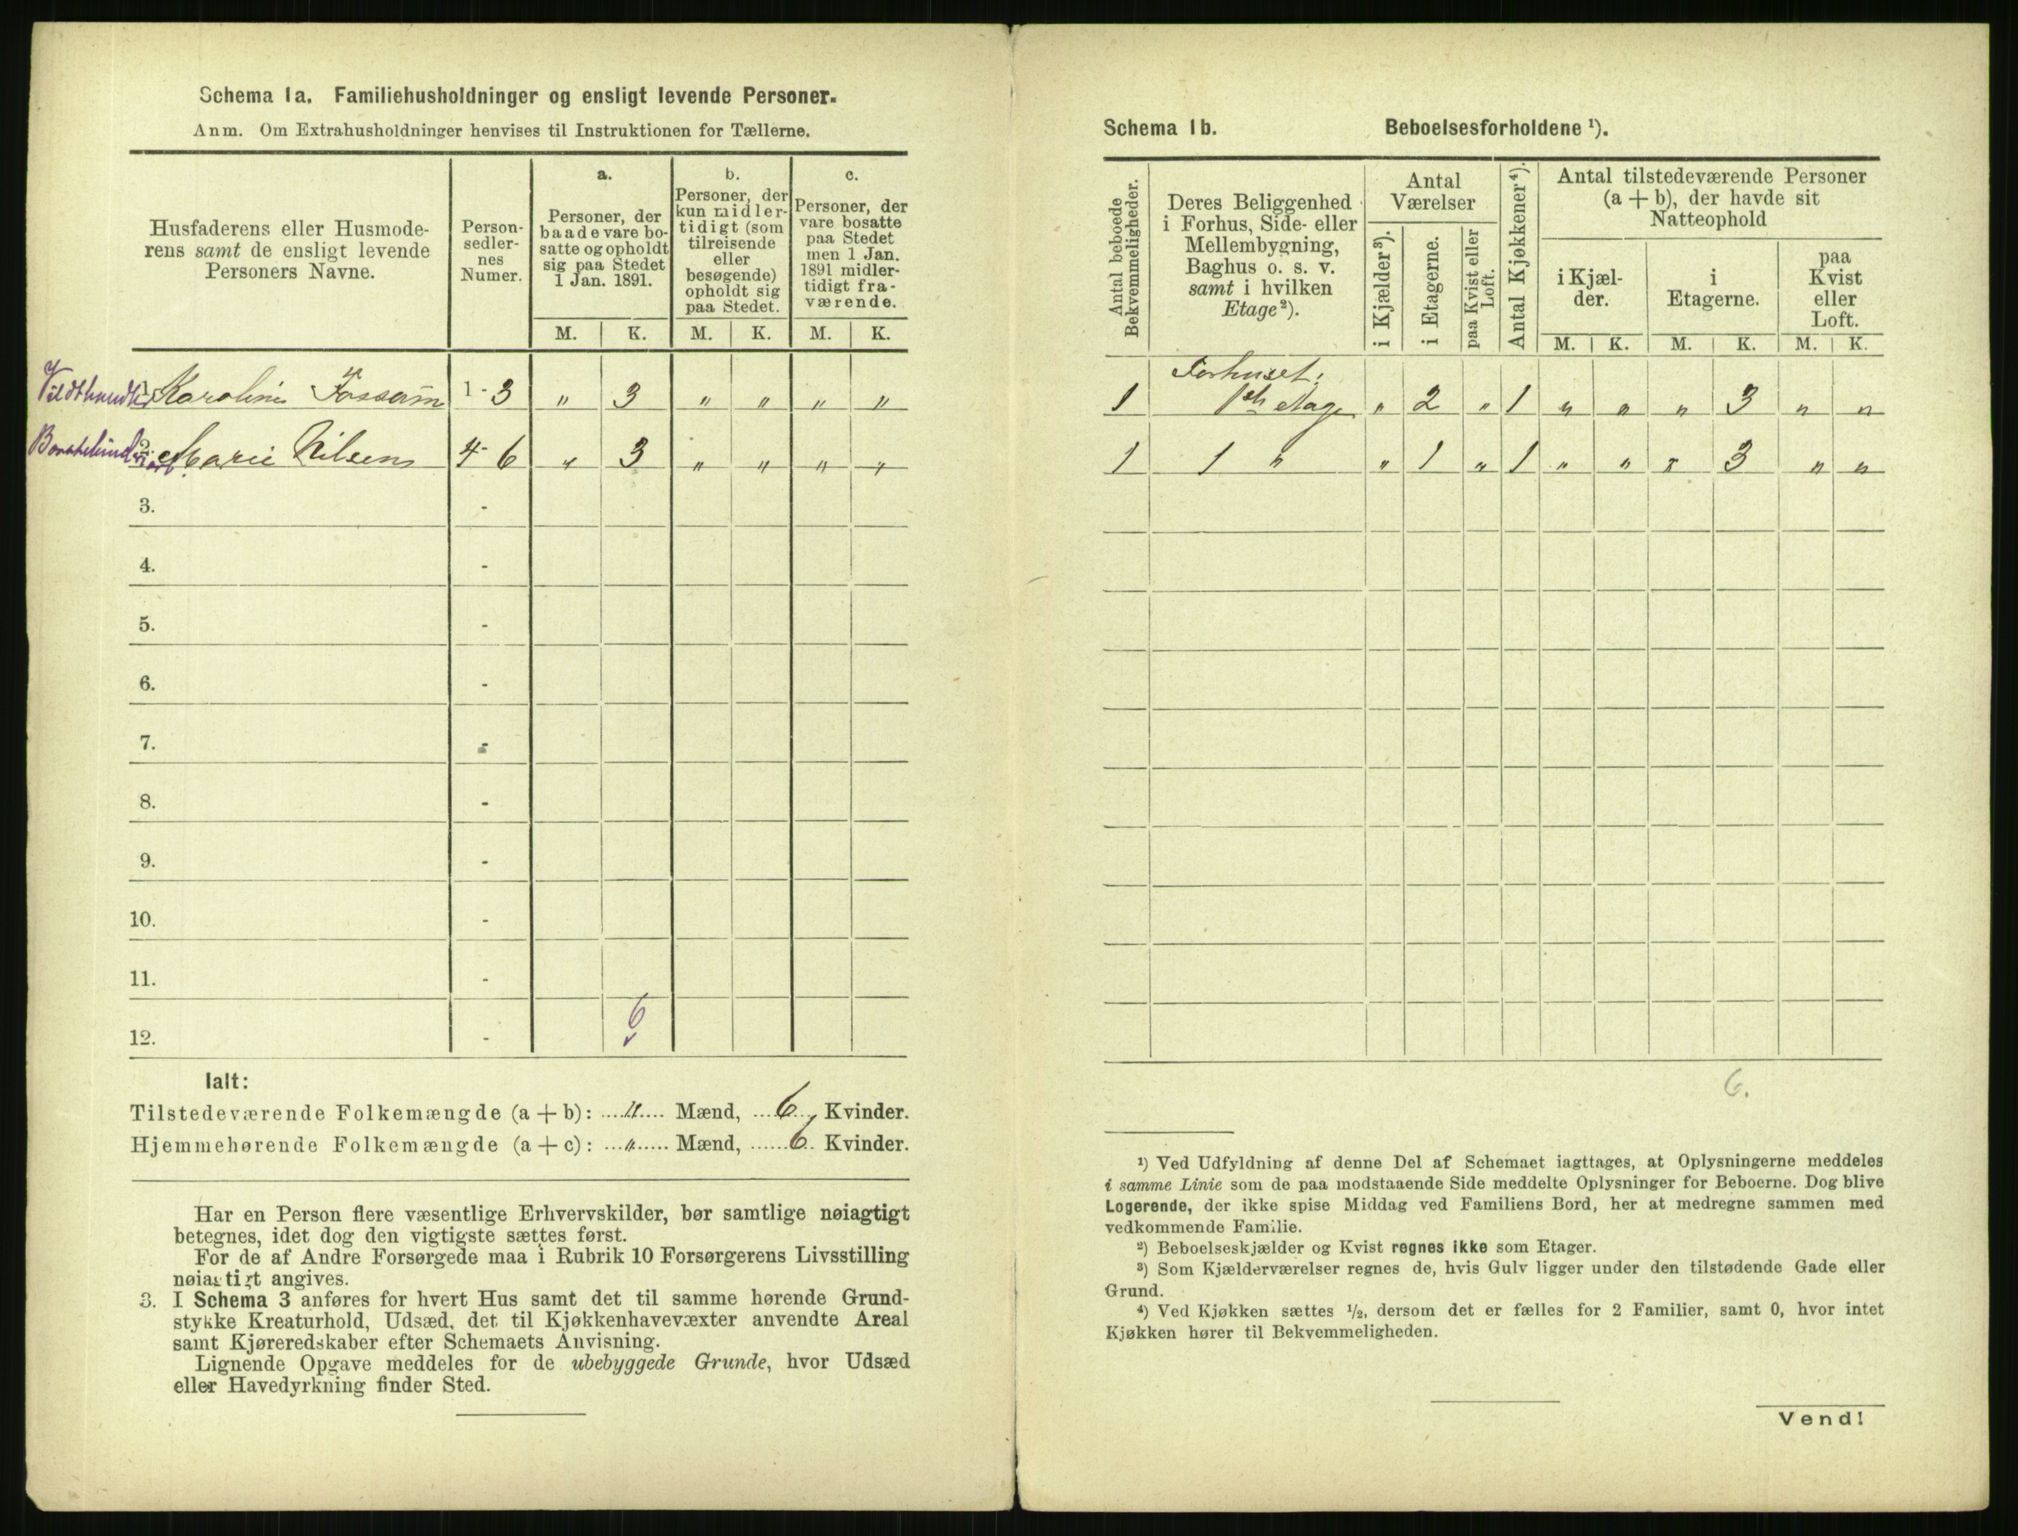 Schema 1a. Familiehusholdninger og ensligt levende Personer.
Anm. Om Extrahusholdninger henvises til Instruktionen for Tællerne.
Husfaderens eller Husmoderens samt de ensligt levende Personers Navne.
Person-sedler-nes Numer.
a.
Personer, der baade vare bosatte og opholdt sig paa Stedet 1 Jan. 1891.
b.
Personer, der kun midlertidigt (som tilreisende eller besøgende) opholdt sig paa Stedet.
c.
Personer, der vare bosatte paa Stedet men 1 Jan. 1891 midlertidigt fraværende.
M. K. M. K. M. K.
Karoline 1-3 „ 3 „ „ „ „
Marie Nilsen 4-6 „ 3 „ „ „ „
3. -
4. -
5. -
6. -
7. -
8. -
9. -
10. -
11. -
12. - 6
Ialt:
Tilstedeværende Folkemængde (a + b): „ Mænd, 6 Kvinder.
Hjemmehørende Folkemængde (a + c): „ Mænd, 6 Kvinder.
Har en Person flere væsentlige Erhvervskilder, bør samtlige nøiagtigt
betegnes, idet dog den vigtigste sættes først.
For de af Andre Forsørgede maa i Rubrik 10 Forsørgerens Livsstilling
nøiagtigt angives.
3. I Schema 3 anføres for hvert Hus samt det til samme hørende Grund-
stykke Kreaturhold, Udsæd, det til Kjøkkenhavevæxter anvendte Areal
samt Kjøreredskaber efter Schemaets Anvisning.
Lignende Opgave meddeles for de ubebyggede Grunde, hvor Udsæd
eller Havedyrkning finder Sted.
Schema 1b. Beboelsesforholdene ¹).
Antal beboede Bekvemmeligheder.
Deres Beliggenhed i Forhus, Side- eller Mellembygning, Baghus o. s. v. samt i hvilken Etage²).
Antal Værelser
i Kjælder³).
i Etagerne.
paa Kvist eller Loft.
Antal Kjøkkener⁴).
Antal tilstedeværende Personer (a + b), der havde sit Natteophold
i Kjælder.
i Etagerne.
paa Kvist eller Loft.
M. K. M. K. M. K.
Forhuset:
1 1ste Etage „ 2 „ 1 „ „ „ 3 „ „
1 1 „ „ 1 „ 1 „ „ „ 3 „ „
6.
¹) Ved Udfyldning af denne Del af Schemaet iagttages, at Oplysningerne meddeles
i samme Linie som de paa modstaaende Side meddelte Oplysninger for Beboerne. Dog blive
Logerende, der ikke spise Middag ved Familiens Bord, her at medregne sammen med
vedkommende Familie.
²) Beboelseskjælder og Kvist regnes ikke som Etager.
³) Som Kjælderværelser regnes de, hvis Gulv ligger under den tilstødende Gade eller
Grund.
⁴) Ved Kjøkken sættes ½, dersom det er fælles for 2 Familier, samt 0, hvor intet
Kjøkken hører til Bekvemmeligheden.
Vend!